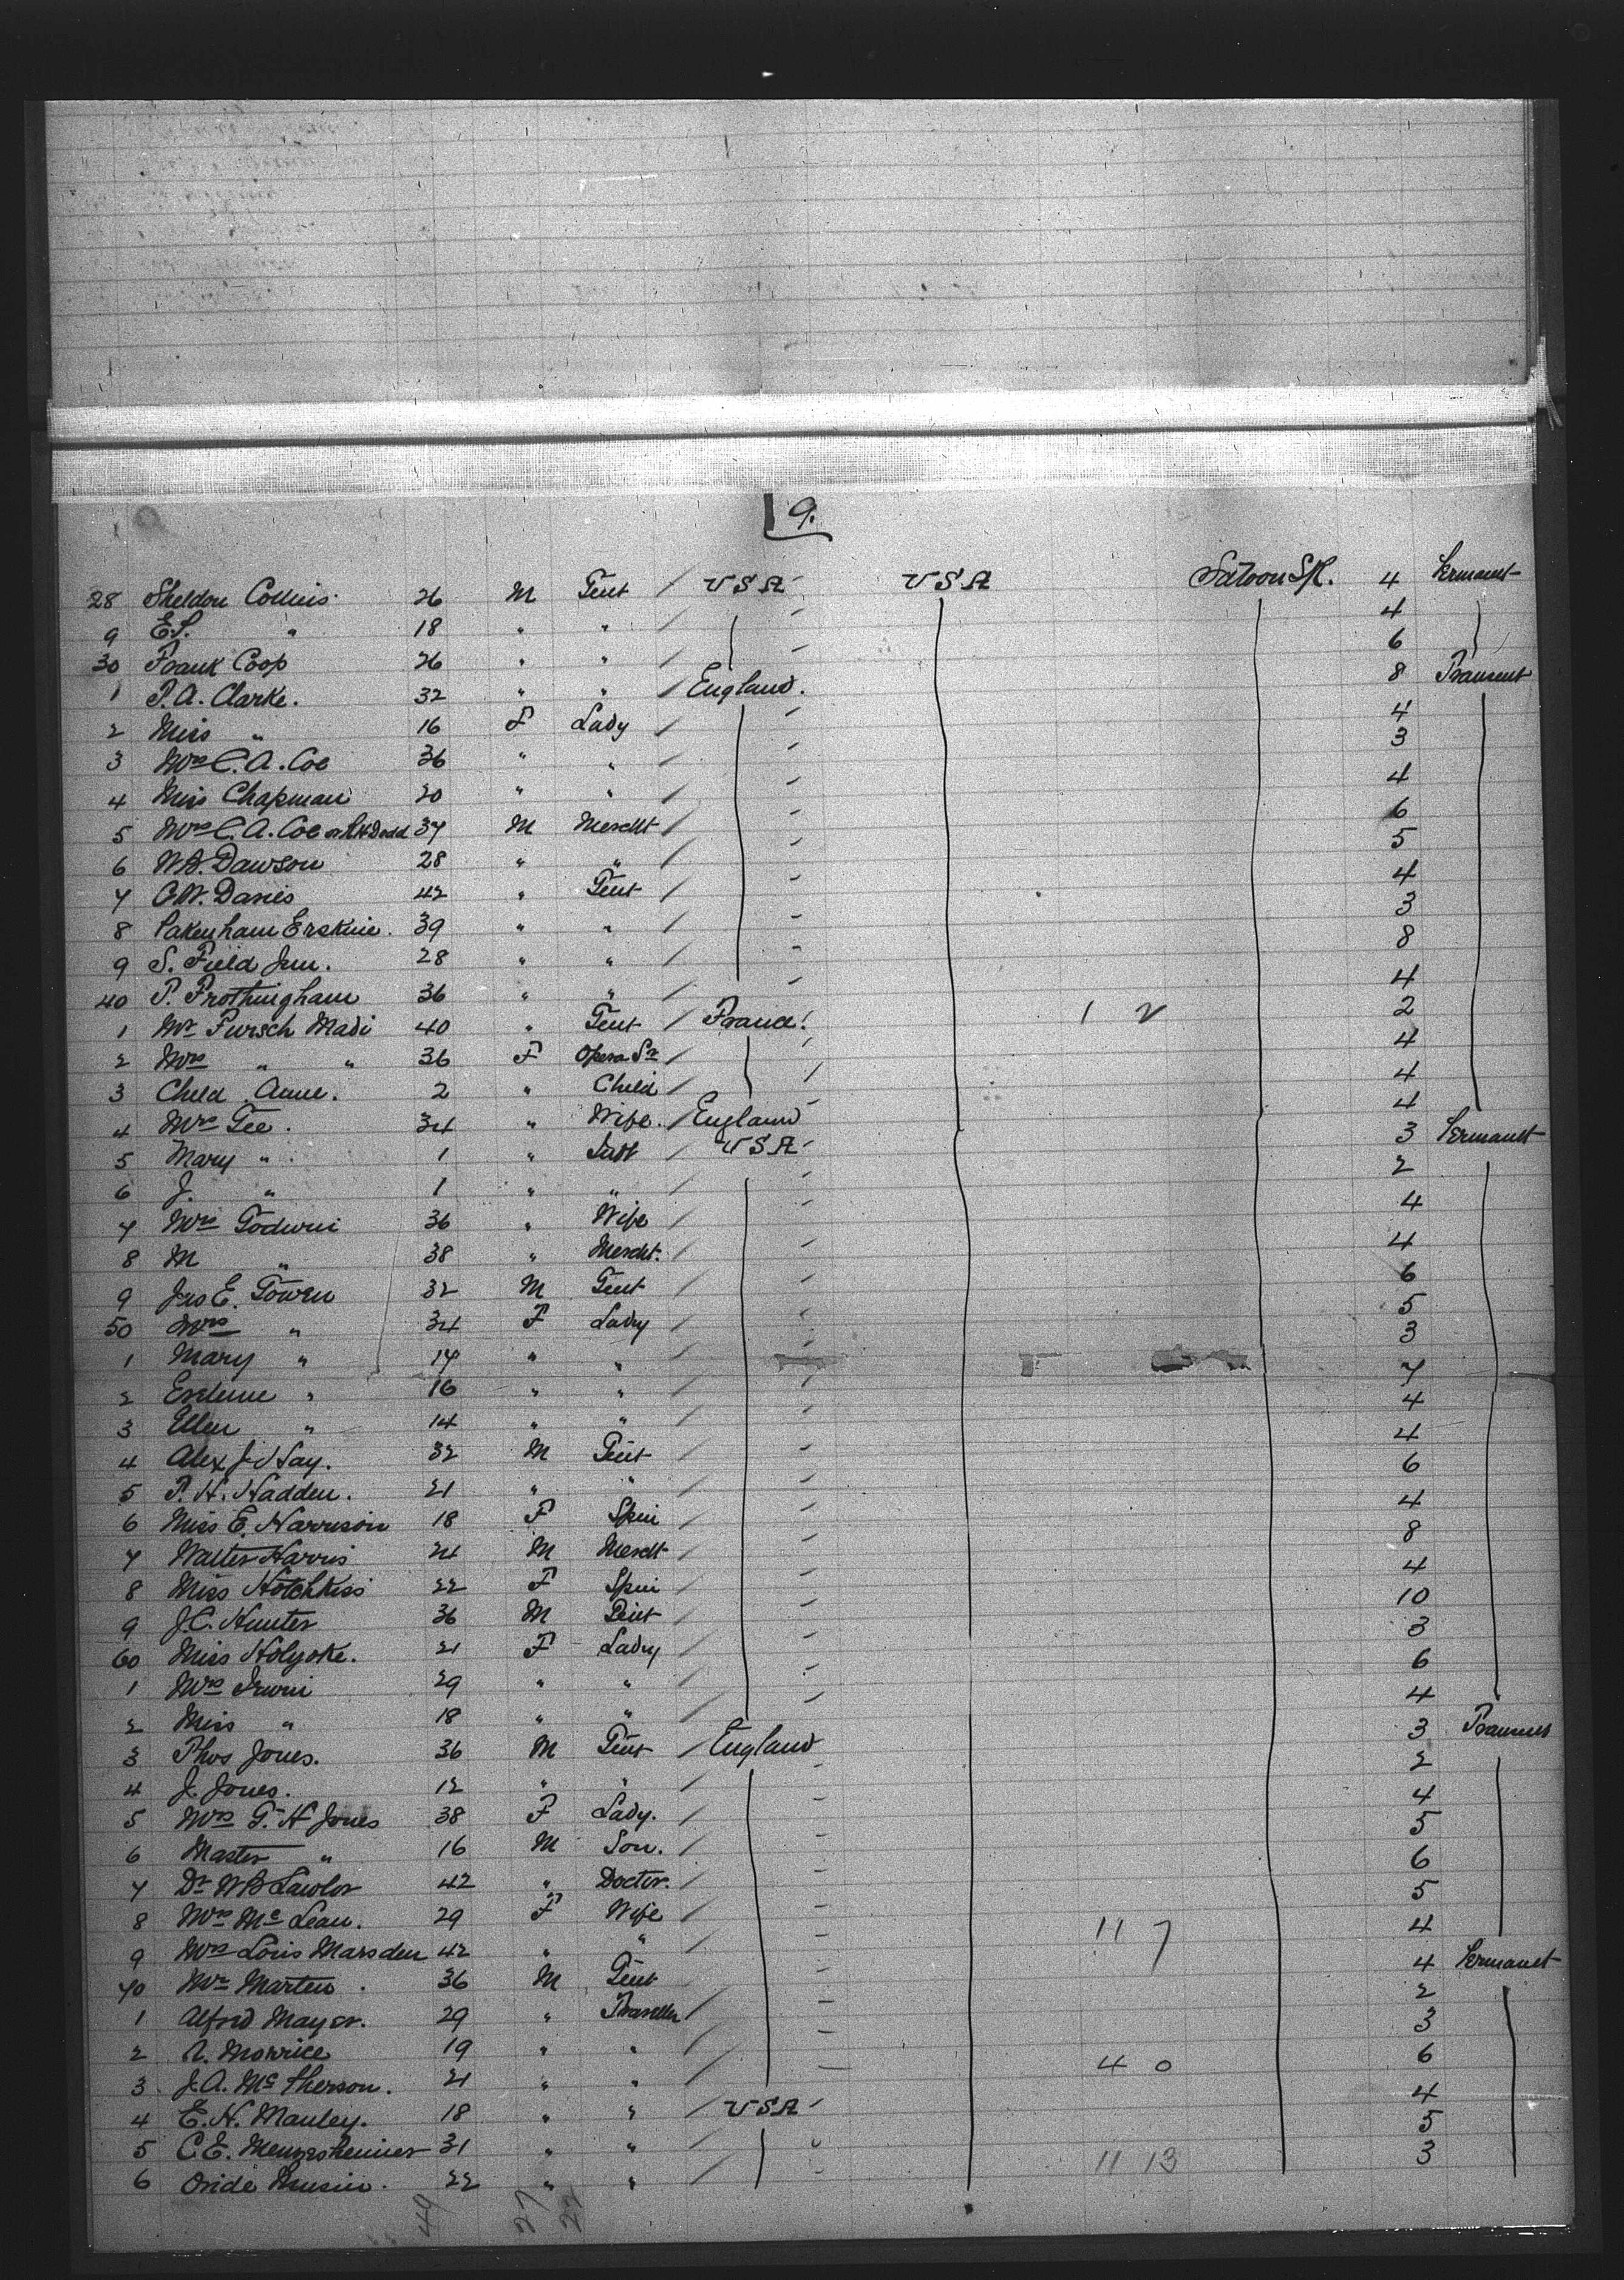 9.
28 Sheldon Collins. 26 M Gent / USA USA Saloon S/R. 4 Permanent
9 E.S. " 18 " " / 4
30 Frank Coop 26 " " / 6
1 P.A. Clarke. 32 " " / England. 8 Transient
2 Miss " 16 F Lady / 4
3 Mrs C.A. Coe 36 " " / 3
4 Miss Chapman 20 " " / 4
5 Mrs C.A. Coe or 37 M Mercht / 6
6 W.B. Dawson 28 " " / 5
7 C.W. Davies 42 " Gent / 4
8 Pakenham Erskine. 39 " " / 3
9 S. Field Jun. 28 " " / 8
40 P. Frothingham 36 " " / 4
1 Mr Fursch Madi 40 " Gent / France! 1 2 2
2 Mrs " " 36 F Opera Sr / 4
3 Child. 2 " Child / 4
4 Mrs Gee. 34 " Wife. / England 4
5 Mary " 1 " / USA 3 Permanent
6 J. " 1 " " / 2
7 Mrs Godwin 36 " Wife / 4
8 M " 38 " Mercht. / 4
9 Jno E. Gowen 32 M Gent / 6
50 Mrs " 34 F Lady / 5
1 Mary " 17 " " / 3
2 " 16 " " / 7
3 Ellen " 14 " " / 4
4 Alex J. Hay. 32 M Gent / 4
5 P. H. Hadden. 21 " " / 6
6 Miss E. Harrison 18 F Spin / 4
7 Walter Harris 24 M Mercht / 8
8 Miss Hotchkiss 22 F Spin / 4
9 J.C. Hunter 36 M Gent / 10
60 Miss Holyoke. 21 F Lady / 3
1 Mrs Irwin 29 " " / 6
2 Miss " 18 " " / 4
3 Thos Jones. 36 M Gent / England 3 Transient
4 J. Jones. 12 " " / 2
5 Mrs G. H Jones 38 F Lady. / 4
6 Master " 16 M Son. / 5
7 Dr W B Lawlor 42 " Doctor. / 6
8 Mrs Mc Lean. 29 F Wife / 5
9 Mrs Loris Marsden 42 " " / 11 7 4
70 Mr Marten. 36 M Gent / 4 Permanent
1 Alfred Mayer. 29 " Traveller / 2
2 A. Morrice 19 " " / 3
3 J.A. Mc Pherson. 21 " " / 4 0 6
4 E. H. Manley. 18 " " / USA 4
5 C.E. 31 " " / 5
6 Ovide Musin. 22 " " / 11 13 3
49 27 22